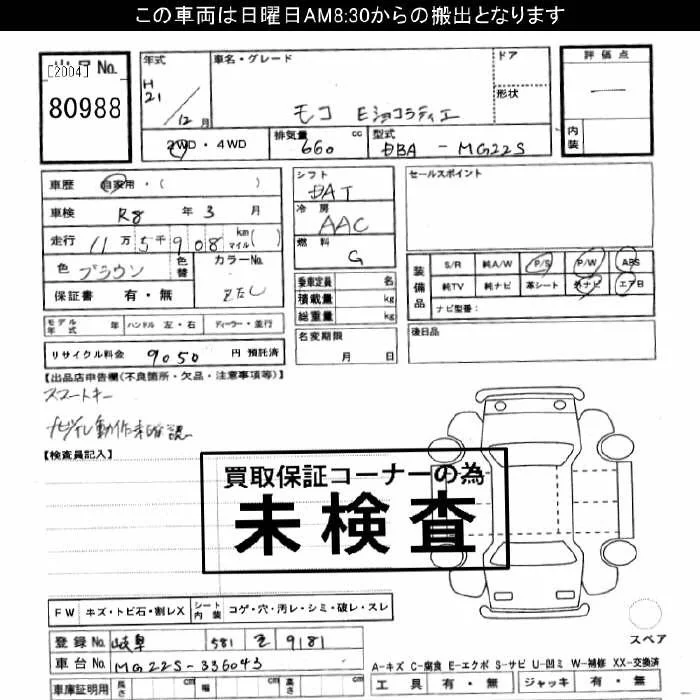 この車両は日曜日AM8:30からの搬出となります
[2004] No.
80988
年式 H21/12月
車名・グレード モコ Eショコラティエ
ドア
形状
評価点 —
内装
2WD・4WD
排気量 660 cc
型式 DBA - MG22S
車歴 自家用・( )
車検 R8年3月
走行 11万5千908 km マイル( )
色 ブラウン 色替 カラーNo. ZたL
保証書 有・無
シフト DAT
冷房 AAC
燃料 G
乗車定員 名
積載量 kg
総重量 kg
セールスポイント
装備品 S/R 純A/W P/S P/W ABS
純TV 純ナビ 革シート 外ナビ エアB
ナビ型番:
モデル年式 年 ハンドル 左・右 ディーラー・並行
リサイクル料金 9050 円 預託済
名変期限 月 日
後日品
【出品店申告欄(不良箇所・欠品・注意事項等)】
スマートキー
ナビTV動作未確認
【検査員記入】
買取保証コーナーの為
未検査
FW キズ・トビ石・割レX シート内装 コゲ・穴・汚レ・シミ・破レ・スレ
スペア
登録No. 岐阜 581 9181
車台No. MG22S-336043
A-キズ C-腐食 E-エクボ S-サビ U-凹ミ W-補修 XX-交換済
車庫証明用 長さ cm 幅 cm 高さ cm
工具 有・無 ジャッキ 有・無